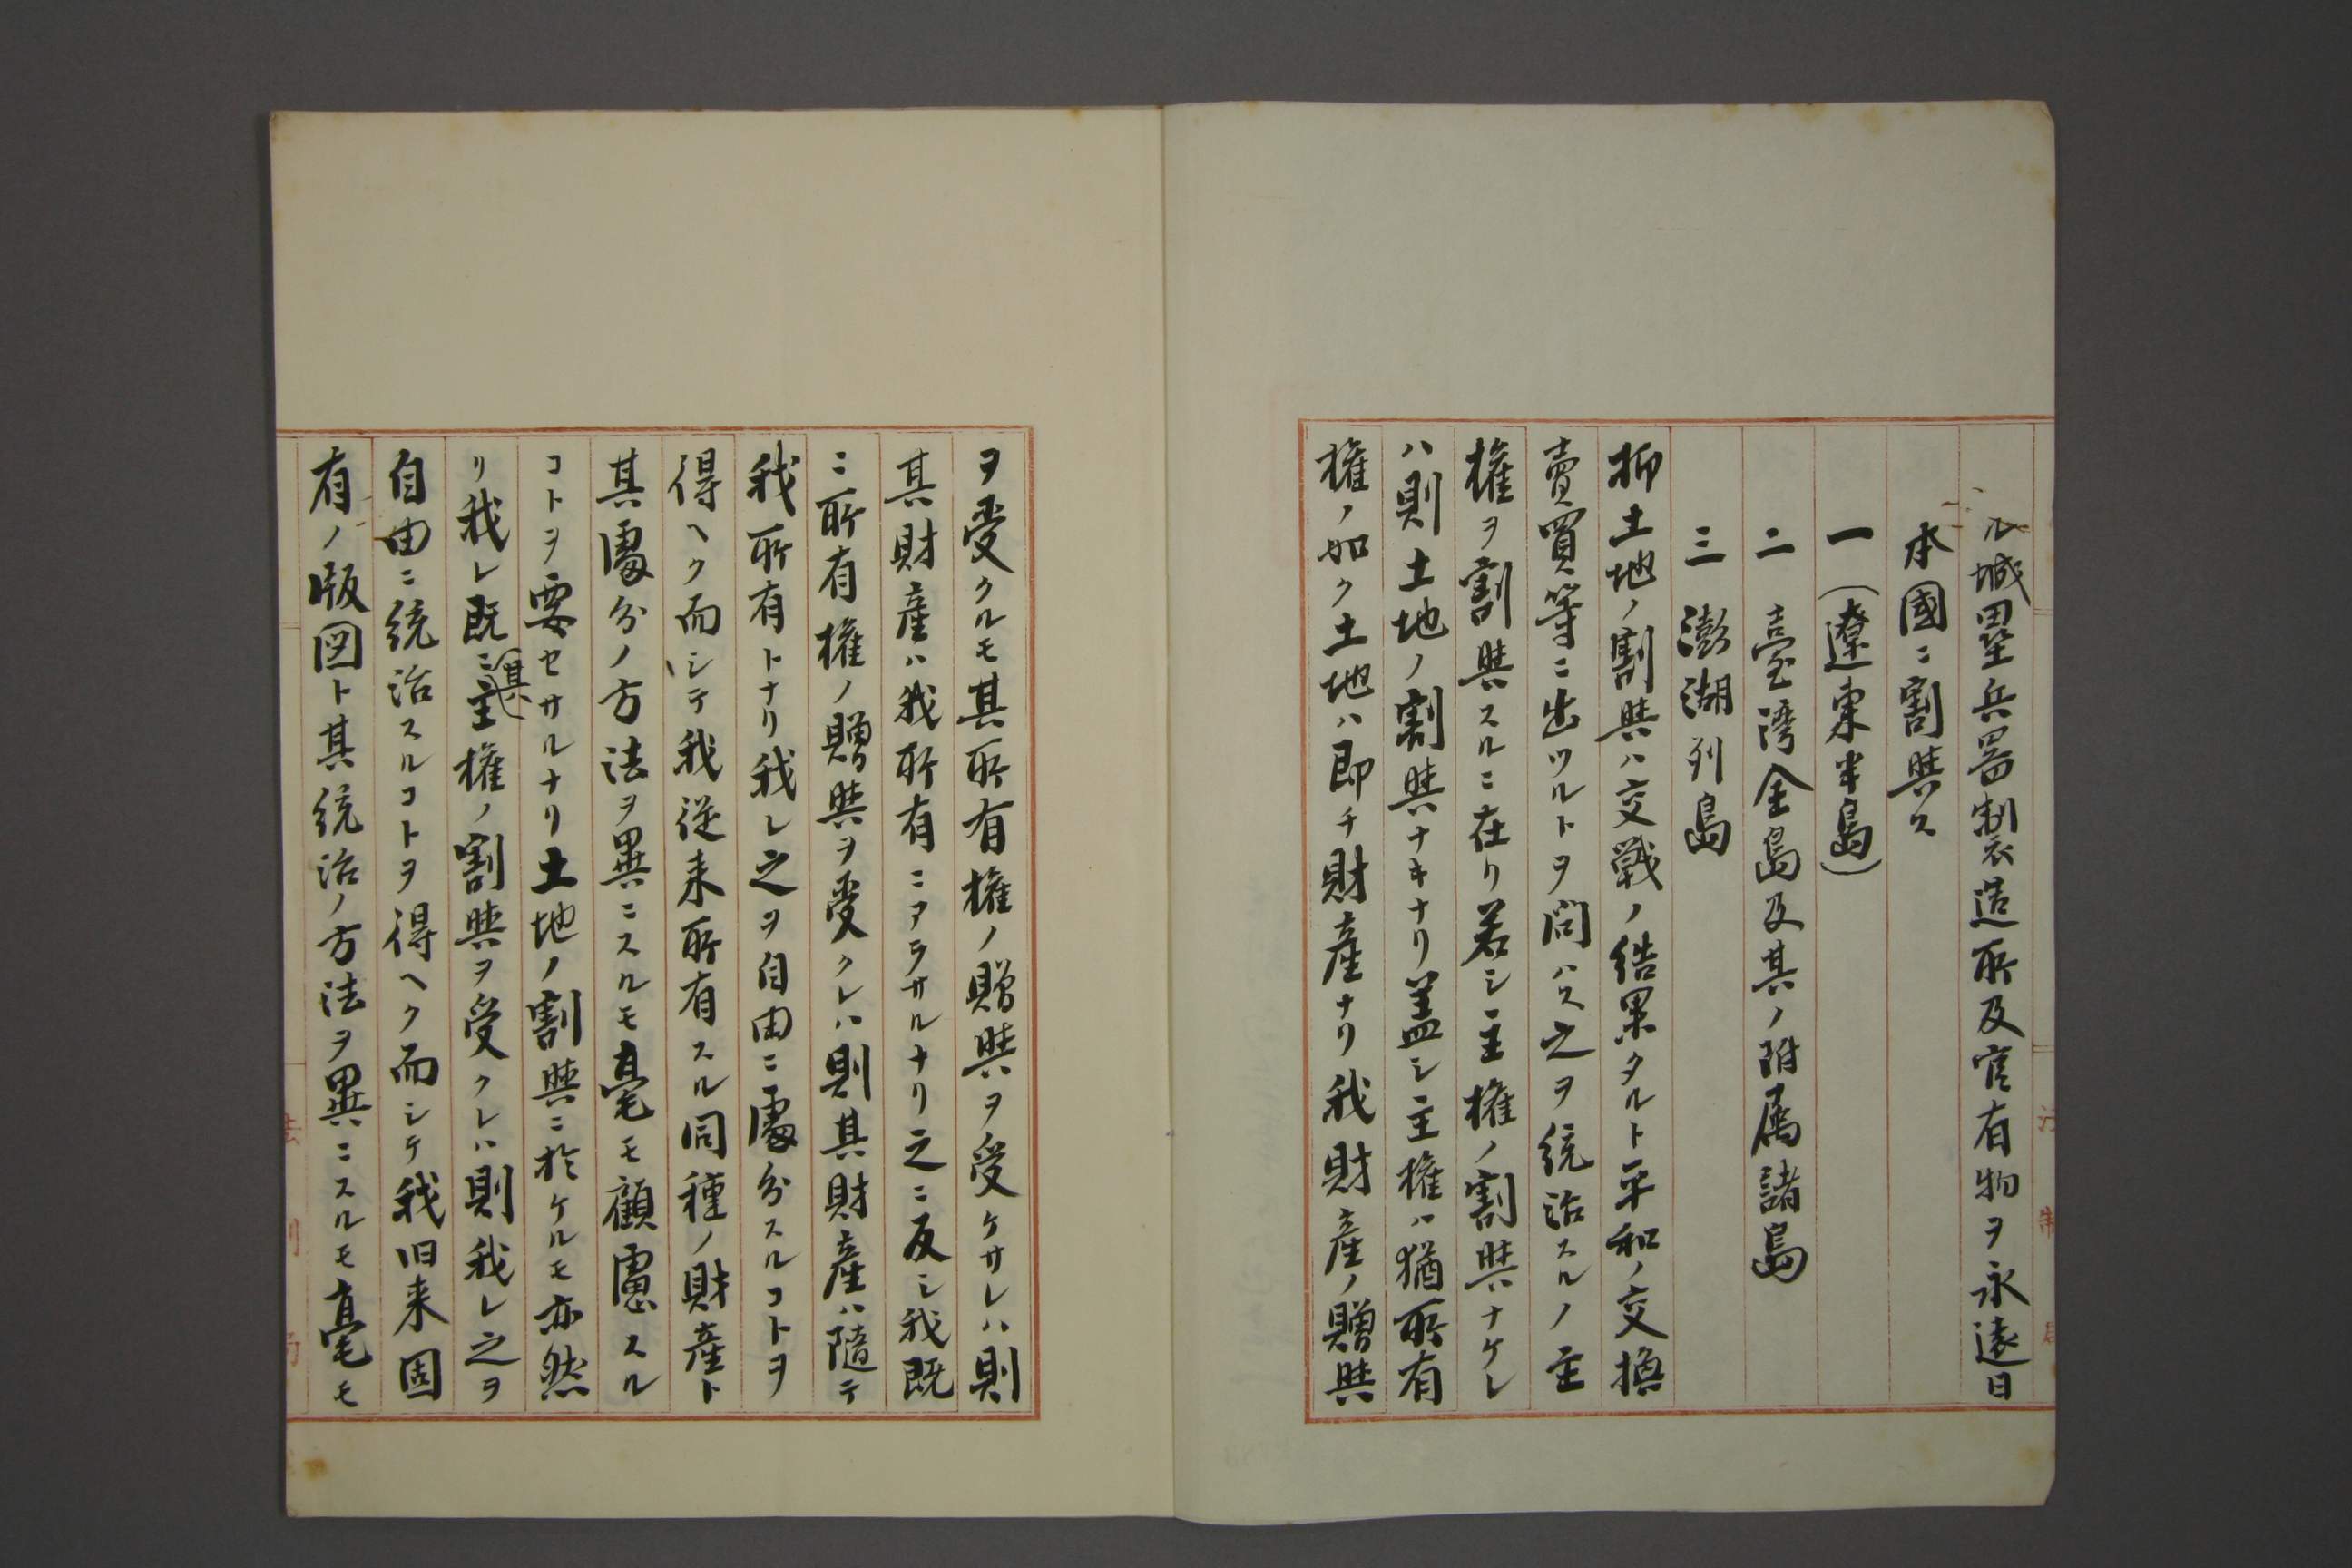 ル城塁兵器製造所及官有物ヲ永遠日
本國ニ割與ス
一(遼東半島)
二 臺湾全島及其ノ附属諸島
三 澎湖列島
抑土地ノ割與ハ交戦ノ結果タルト平和ノ交換
賣買等ニ出ツルトヲ問ハス之ヲ統治スルノ主
権ヲ割與スルニ在リ若シ主権ノ割與ナケレ
ハ則土地ノ割與ナキナリ蓋シ主権ハ猶所有
権ノ如ク土地ハ即チ財産ナリ我財産ノ贈與
ヲ受クルモ其所有権ノ贈與ヲ受ケサレハ則
其財産ハ我所有ニアラサルナリ之ニ反シ我既
ニ所有権ノ贈與ヲ受クレハ則其財産ハ随テ
我所有トナリ我レ之ヲ自由ニ處分スルコトヲ
得ヘク而シテ我従来所有スル同種ノ財産ト
其處分ノ方法ヲ異ニスルモ毫モ顧慮スル
コトヲ要セサルナリ土地ノ割與ニ於ケルモ亦然
リ我レ既ニ其主権ノ割與ヲ受クレハ則我レ之ヲ
自由ニ統治スルコトヲ得ヘク而シテ我旧来固
有ノ版図ト其統治ノ方法ヲ異ニスルモ毫モ
法制局